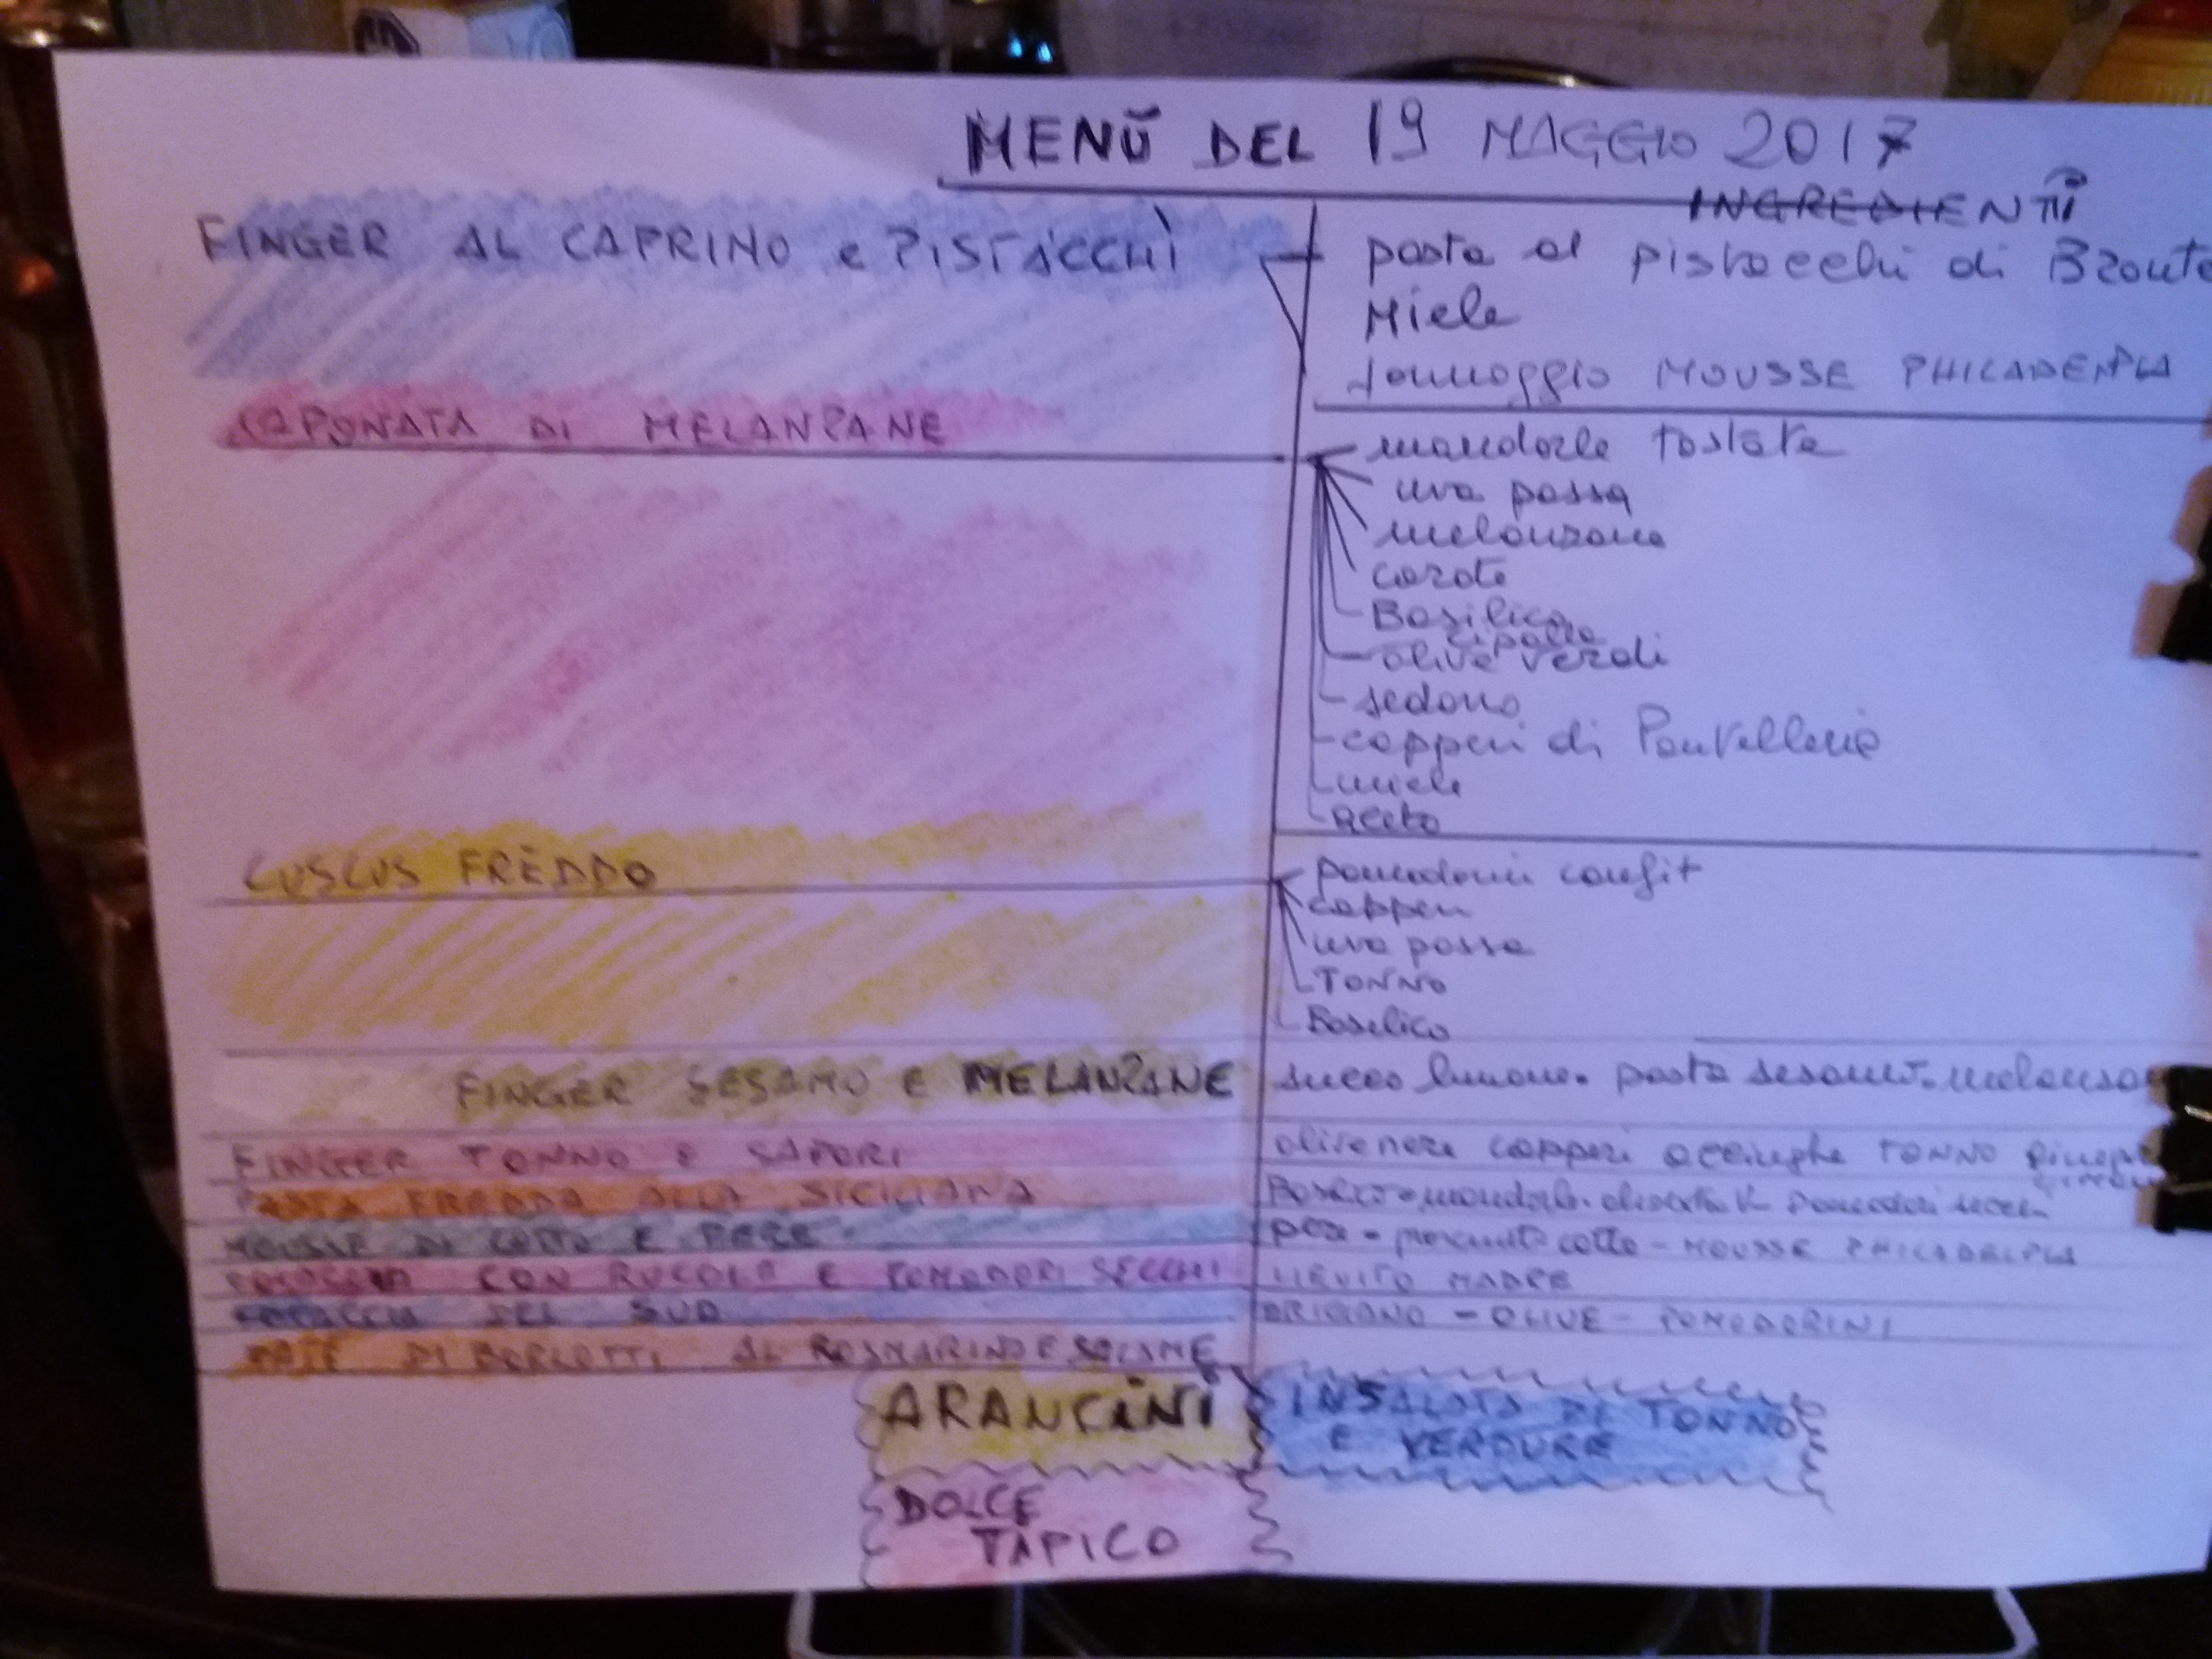 MENÙ DEL 19 MAGGIO 2017
INGREDIENTI
FINGER AL CAPRINO e PISTACCHI
pasta al pistacchi di Bronte
Miele
formaggio MOUSSE PHILADENPLA
CAPONATA DI MELANZANE
mandorle tostate
uva passa
melanzane
carote
Basilico
cipolla
olive verdi
sedano
capperi di Pantelleria
miele
aceto
CUSCUS FREDDO
pomodorini confit
capperi
uva passa
TONNO
Basilico
FINGER SESAMO E MELANZANE
succo limone. pasta sesamo. melanzane
FINGER TONNO E SAPORI
olive nere capperi acciughe TONNO
PASTA FREDDA ALLA SICILIANA
pomodori secchi
MOUSSE DI COTTO E PERE
pere - prosciutto cotto - MOUSSE PHILADELPLA
FOCACCIA CON RUCOLA E POMODORI SECCHI
LIEVITO MADRE
FOCACCIA DEL SUD
ORIGANO - OLIVE - POMODORINI
PATÉ DI BORLOTTI AL ROSMARINO E SALAME
ARANCINI
INSALATA DI TONNO
E VERDURE
DOLCE
TAPICO